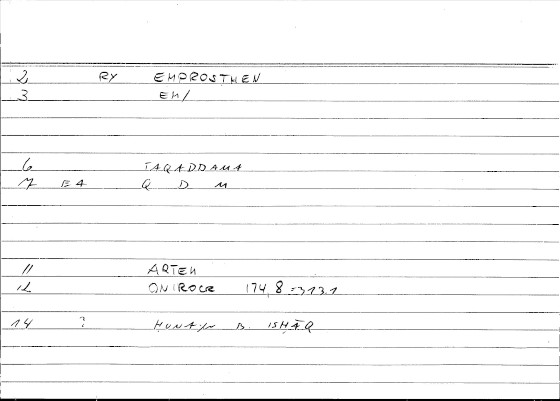 2, RY EMPROSTHEN
3 EM/
6 TAQADDAMA
7 E4 Q D M
11 ARTEM
12 ONIROCR 174,8 = 313.1
14 ? ḤUNAYN B. ISḤĀQ